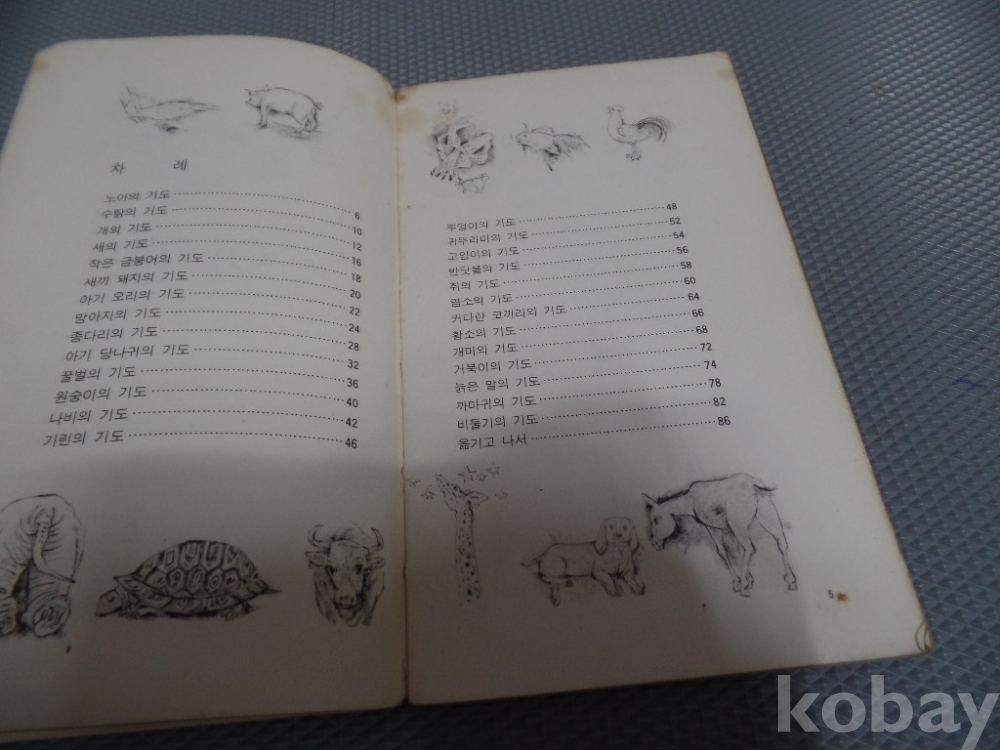 차 례
노아의 기도 6
수탉의 기도 10
개의 기도 12
새의 기도 16
작은 금붕어의 기도 18
새끼 돼지의 기도 20
아기 오리의 기도 22
망아지의 기도 24
종다리의 기도 28
아기 당나귀의 기도 32
꿀벌의 기도 36
원숭이의 기도 40
나비의 기도 42
기린의 기도 46
부엉이의 기도 48
귀뚜라미의 기도 52
고양이의 기도 54
반딧불의 기도 56
쥐의 기도 58
염소의 기도 60
커다란 코끼리의 기도 64
황소의 기도 66
개미의 기도 68
거북이의 기도 72
늙은 말의 기도 74
까마귀의 기도 78
비둘기의 기도 82
옮기고 나서 86
5
kobay